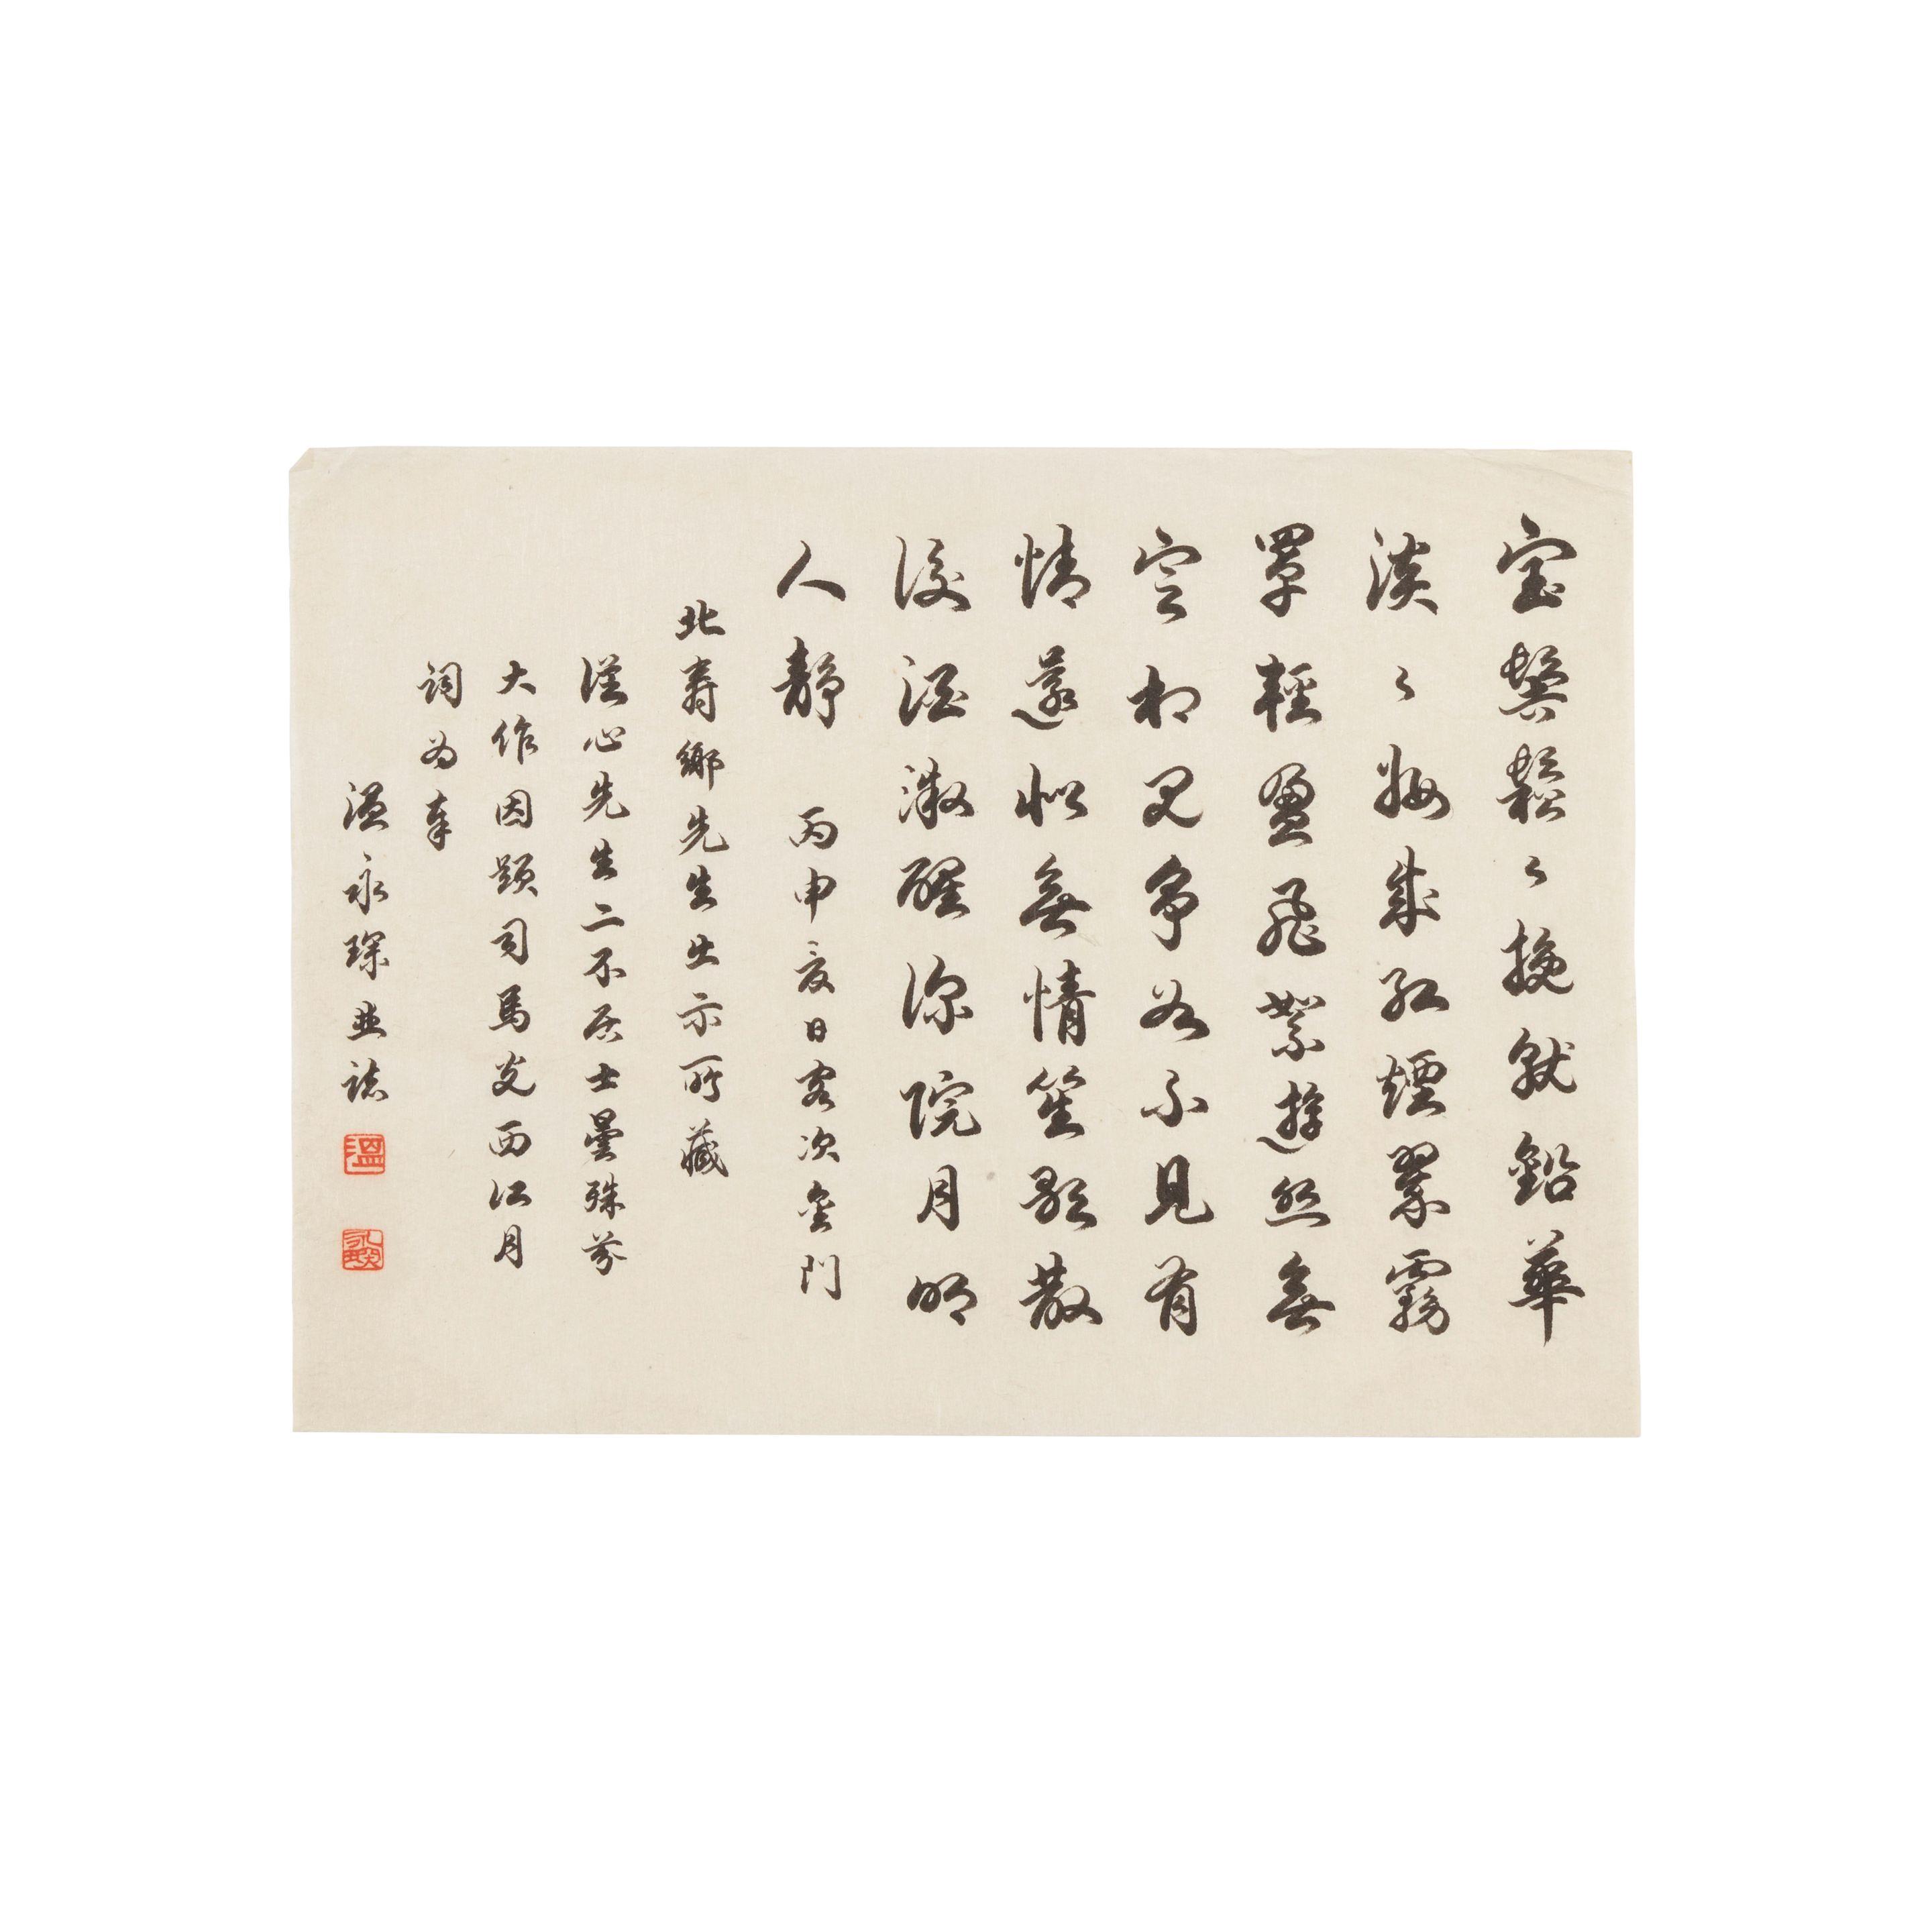 宝髻鬆〻挽就鉛華
淡〻妝成紅煙翠霧
罩輕盈飛絮遊絲無
定相見爭如不見有
情還似無情笙歌散
後酒微醒深院月明
人靜 丙申夏日客次金門
北壽鄉先生出示所藏
心先生二不居士曇殊芬
大作因題司馬光西江月
詞為奉
溫永琛並誌
溫
永琛